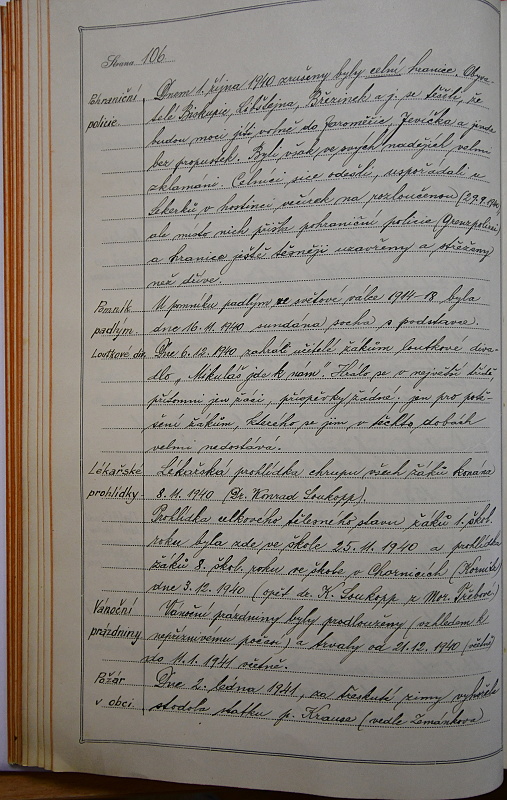 Strana 106
Pohraniční policie
Dnem 1. října 1940 zrušeny byly celní hranice. Obyva-
telé Biskupic, Libštejna, Březinek a j. se těšili, že
budou moci jíti volně do Jaroměřic, Jevíčka a jinde
bez propustek. Byli však ve svých nadějích velmi
zklamáni. Celníci sice odešli, uspořádali u
Sekerků v hostinci večírek na rozloučenou (29.9.1940),
ale místo nich přišla pohraniční policie (Grenzpolizei)
a hranice ještě těsněji uzavřeny a střeženy
než dříve.
Pomník padlým
U pomníku padlým ve světové válce 1914-18 byla
dne 16.11.1940 sundána socha s podstavce.
Loutkové div.
Dne 6.12.1940 zahráli učitelé žákům loutkové diva-
dlo „Mikuláš jde k nám". Hrálo se v největší třídě,
přítomni jen žáci, příspěvky žádné. jen pro potě-
šení žákům, kterého se jim v těchto dobách
velmi nedostává.
Lékařské prohlídky
Lékařská prohlídka chrupu všech žáků konána
8.11.1940 (Dr. Konrad Soukopp).
Prohlídka celkového tělesného stavu žáků 1. škol.
roku byla zde ve škole 25.11.1940 a prohlídka
žáků 8. škol. roku ve škole v Chornicích (Kornitz)
dne 3.12.1940 (opět dr. K. Soukopp z Mor. Třebové.)
Vánoční prázdniny
Vánoční prázdniny byly prodlouženy (vzhledem k
nepříznivému počasí) a trvaly od 21.12.1940 (včetně)
do 11.1.1941 včetně.
Požár v obci
Dne 2. ledna 1941, za třeskuté zimy vyhořela
stodola statku p. Krause (vedle Zemánkova